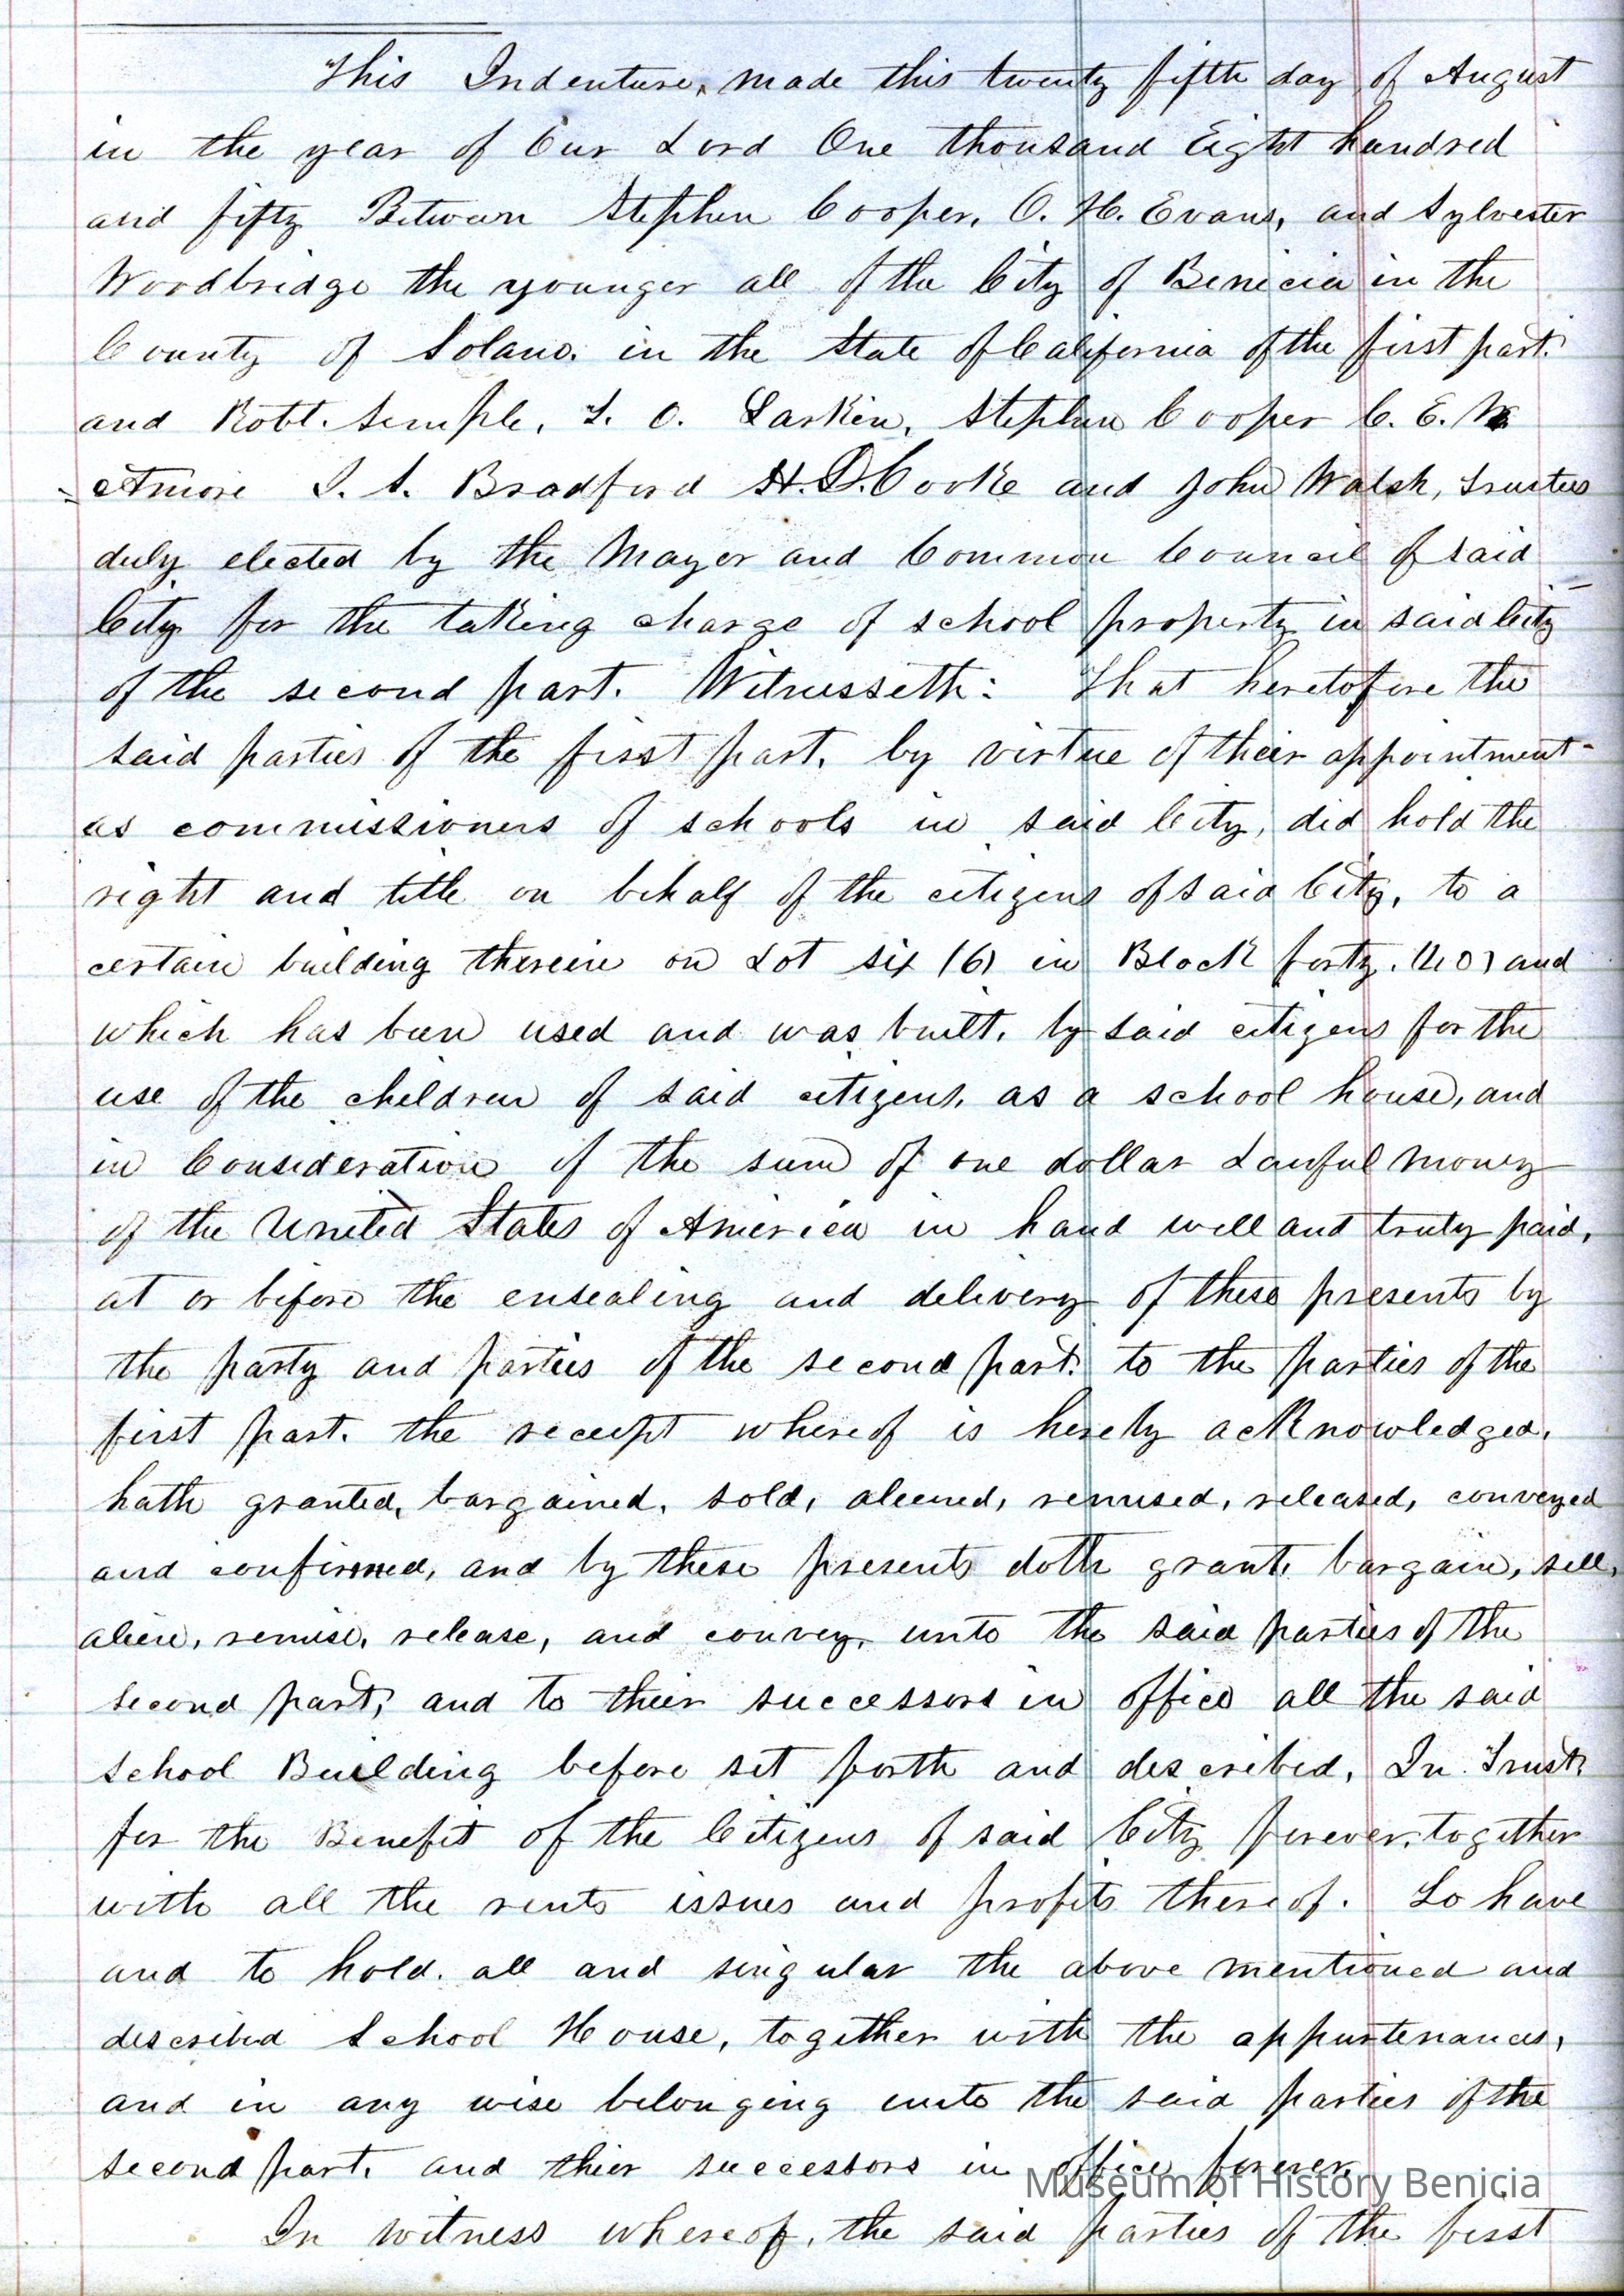 This Indenture, made this twenty fifth day of August
in the year of Our Lord One thousand Eight hundred
and fifty Between Stephen Cooper, O. H. Evans, and Sylvester
Woodbridge the younger all of the City of Benicia in the
County of Solano. in the State of California of the first part.
and Robt. Semple, T. O. Larkin, Stephen Cooper C. E. W
etmore I. S. Bradford H. D. Cooke and John Walsh, Trustees
duly elected by the Mayor and Common Council of said
City for the taking charge of school property in said City
of the second part. Witnesseth: That heretofore the
said parties of the first part, by virtue of their appointment
as commissioners of schools in said City, did hold the
right and title on behalf of the citizens of said City, to a
certain building therein on Lot six (6) in Block forty. (40) and
which has been used and was built, by said citizens for the
use of the children of said citizens, as a school house, and
in Consideration of the sum of one dollar Lawful money
of the United States of America in hand well and truly paid,
at or before the ensealing and delivery of these presents by
the party and parties of the second part. to the parties of the
first part. the receipt whereof is hereby acknowledged,
hath granted, bargained, sold, aliened, remised, released, conveyed
and confirmed, and by these presents doth grant, bargain, sell,
alien, remise, release, and convey, unto the said parties of the
second part, and to their successors in office all the said
School Building before set forth and described, In Trust,
for the Benefit of the Citizens of said City forever, together
with all the rents issues and profits thereof. To have
and to hold. all and singular the above mentioned and
described School House, together with the appurtenances,
and in any wise belonging unto the said parties of the
second part, and their successors in office forever.
Museum of History Benicia
In witness whereof, the said parties of the first